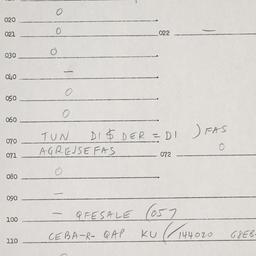 020 O
021 O 022 —
030 O
040 —
050 O
060 O
070 TUN DI$DER = DI ) FAS
071 AGREJSEFAS 072 O
080 O
090 —
100 — QFESALE (057
110 CEBA-R- QAP KU (/144020